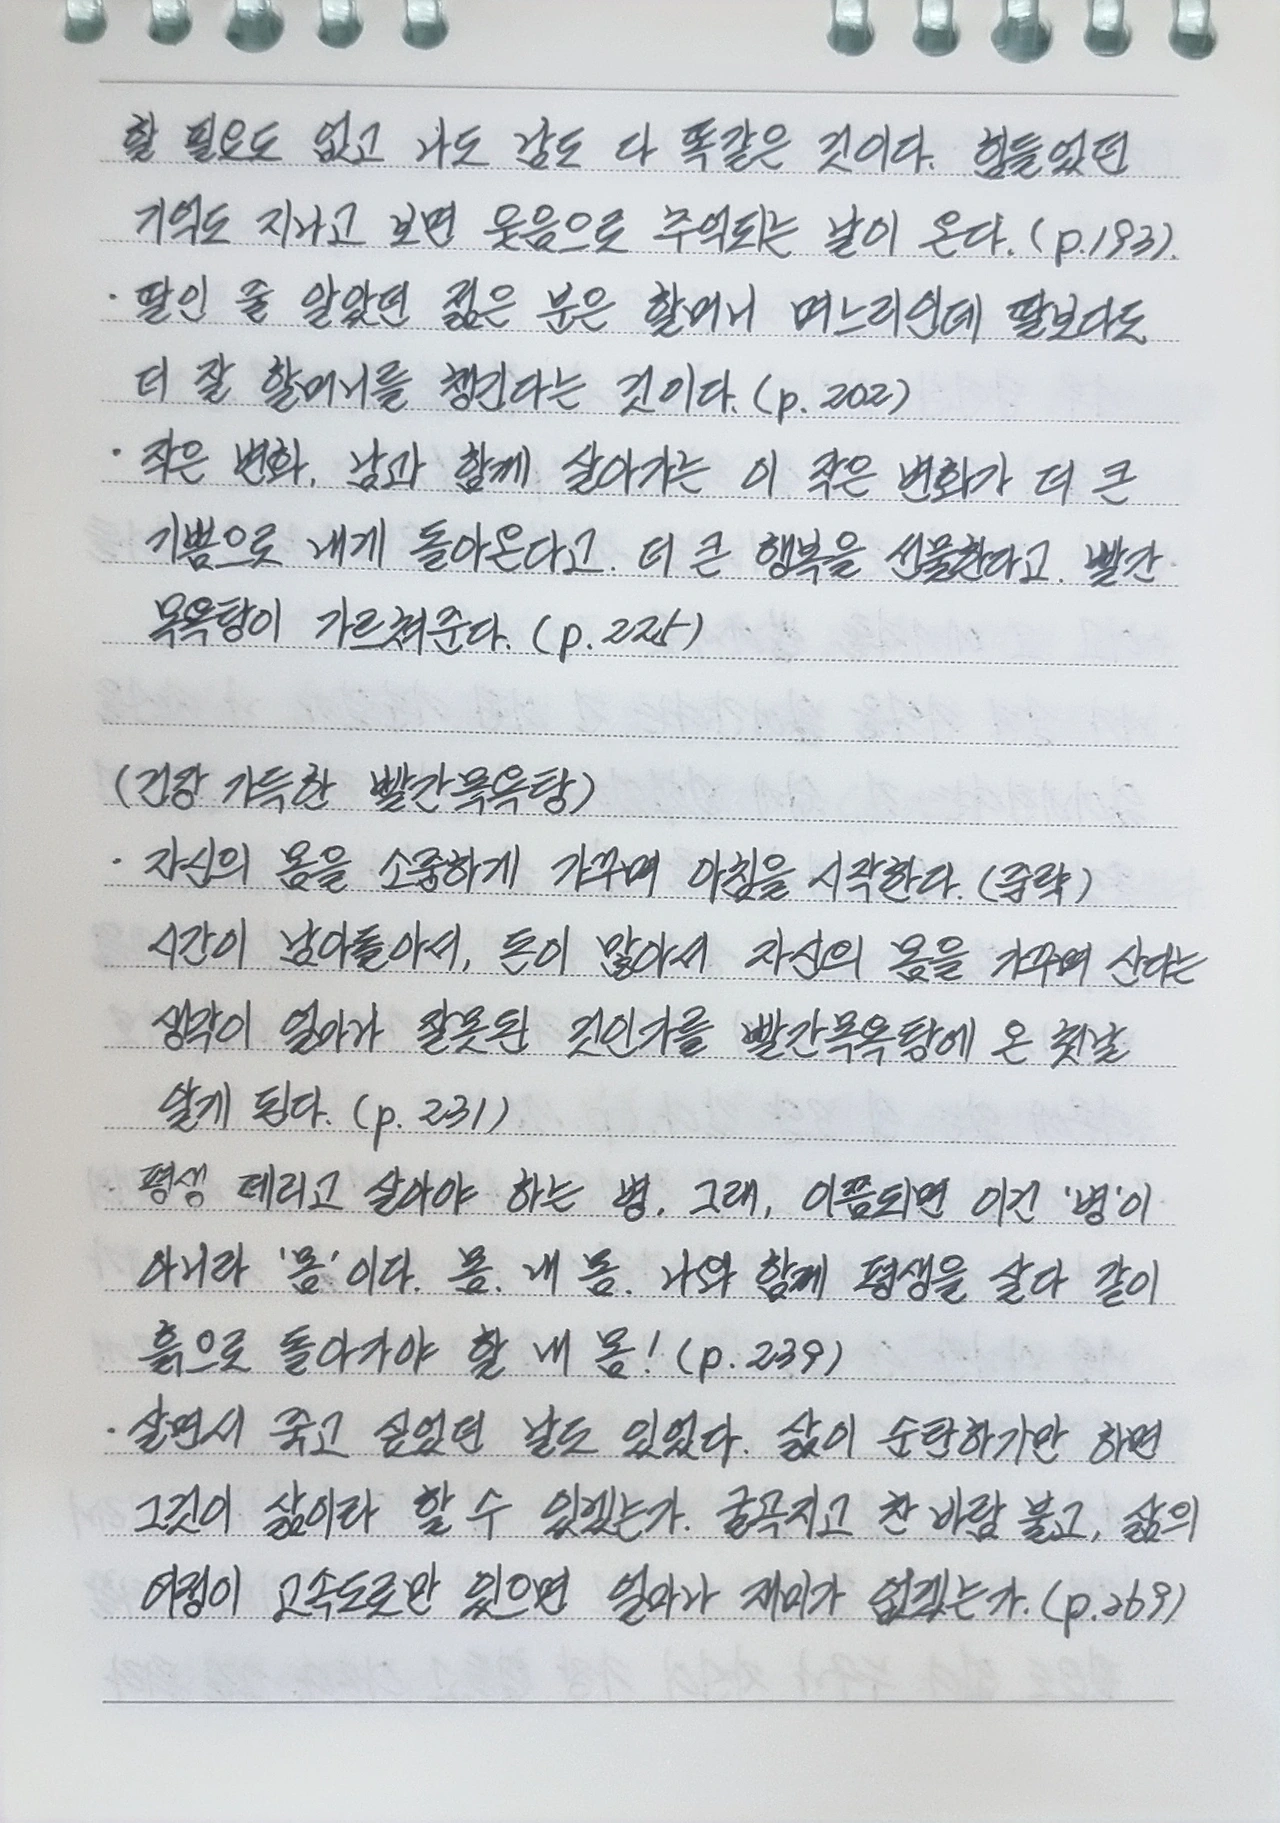 할 필요도 없고 나도 남도 다 똑같은 것이다. 힘들었던
기억도 지나고 보면 웃음으로 추억되는 날이 온다. (p.193).
· 딸인 줄 알았던 젊은 분은 할머니 며느리인데 딸보다도
더 잘 할머니를 챙긴다는 것이다. (p. 202)
· 작은 변화, 남과 함께 살아가는 이 작은 변화가 더 큰
기쁨으로 내게 돌아온다고. 더 큰 행복을 선물한다고. 빨간
목욕탕이 가르쳐준다. (p.225)
(건강 가득한 빨간목욕탕)
· 자신의 몸을 소중하게 가꾸며 아침을 시작한다. (중략)
시간이 남아돌아서, 돈이 많아서 자신의 몸을 가꾸며 산다는
생각이 얼마나 잘못된 것인가를 빨간목욕탕에 온 첫날
알게 된다. (p. 231)
· 평생 데리고 살아야 하는 병. 그래, 이쯤되면 이건 '병'이
아니라 '몸'이다. 몸. 내 몸. 나와 함께 평생을 살다 같이
흙으로 돌아가야 할 내 몸! (p.239)
· 살면서 죽고 싶었던 날도 있었다. 삶이 순탄하기만 하면
그것이 삶이라 할 수 있겠는가. 굴곡지고 찬 바람 불고, 삶의
여정이 고속도로만 있으면 얼마나 재미가 없겠는가. (p.269)